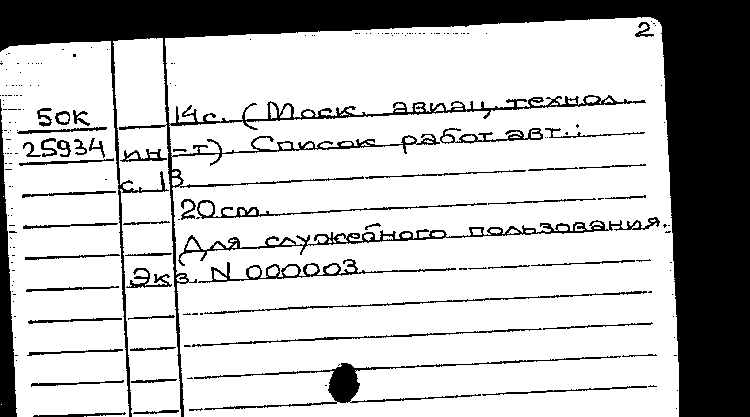 2
50К 14с. (Моск. авиац. технол.
25934 ин-т). Список работ авт.:
с. 13.
20 cm.
Для служебного пользования.
Экз. N 000003.